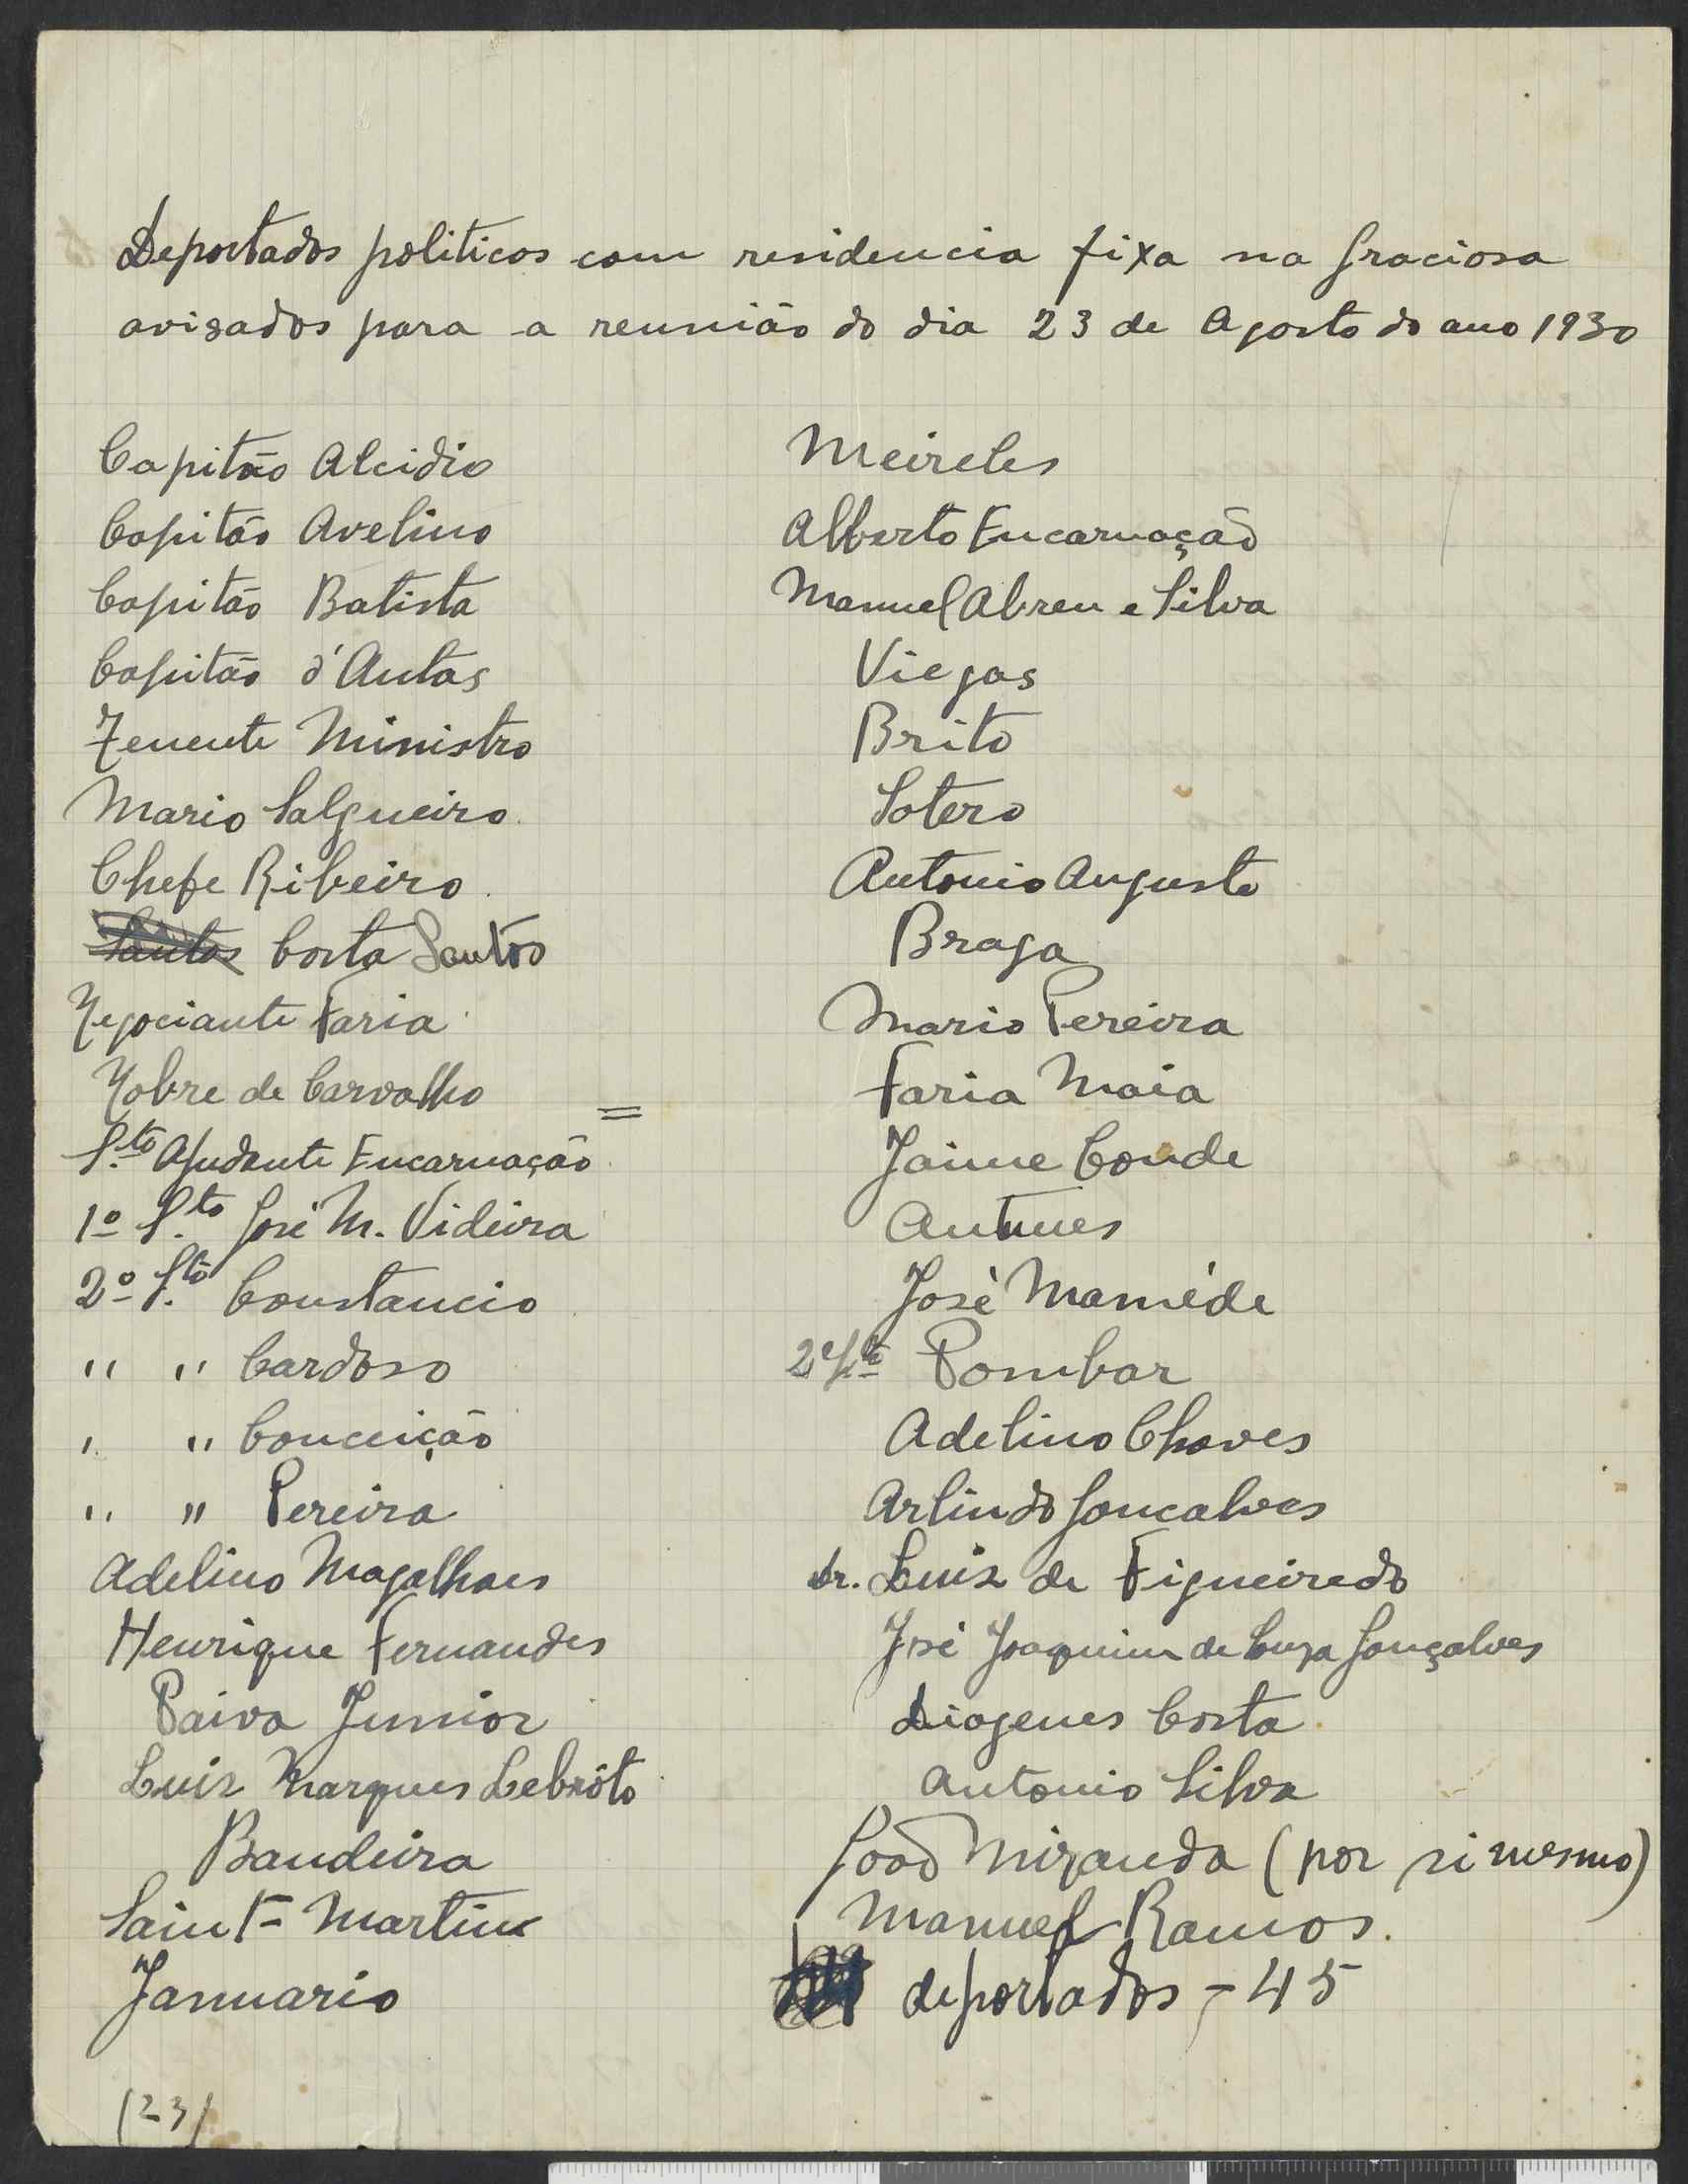 Deportados politicos com residencia fixa na Graciosa
avisados para a reunião do dia 23 de Agosto do ano 1930
Capitão Alcidio
Capitão Avelino
Capitão Batista
Capitão d'Antas
Tenente Ministro
Mario Salgueiro
Chefe Ribeiro
Santos Costa Santos
Negociante Faria
Nobre de Carvalho =
S.to Ajudante Encarnação
1º S.to José M. Videira
2º S.to Constancio
" " Cardoso
" " Conceição
" " Pereira
Adelino Magalhaes
Henrique Fernandes
Paiva Junior
Luis Marques Lebrôto
Bandeira
Saint-Martin
Januario
(23)
Meireles
Alberto Encarnação
Manuel Abreu e Silva
Viegas
Brito
Sotero
Antonio Augusto
Braga
Mario Pereira
Faria Maia
Jaime Conde
Antunes
José Maméde
Pombar
Adelino Chaves
Arlindo Goncalves
Dr. Luis de Figueiredo
José Joaquim de Souza Gonçalves
Diogenes Costa
Antonio Silva
João Miranda (por si mesmo)
Manuel Ramos.
deportados - 45